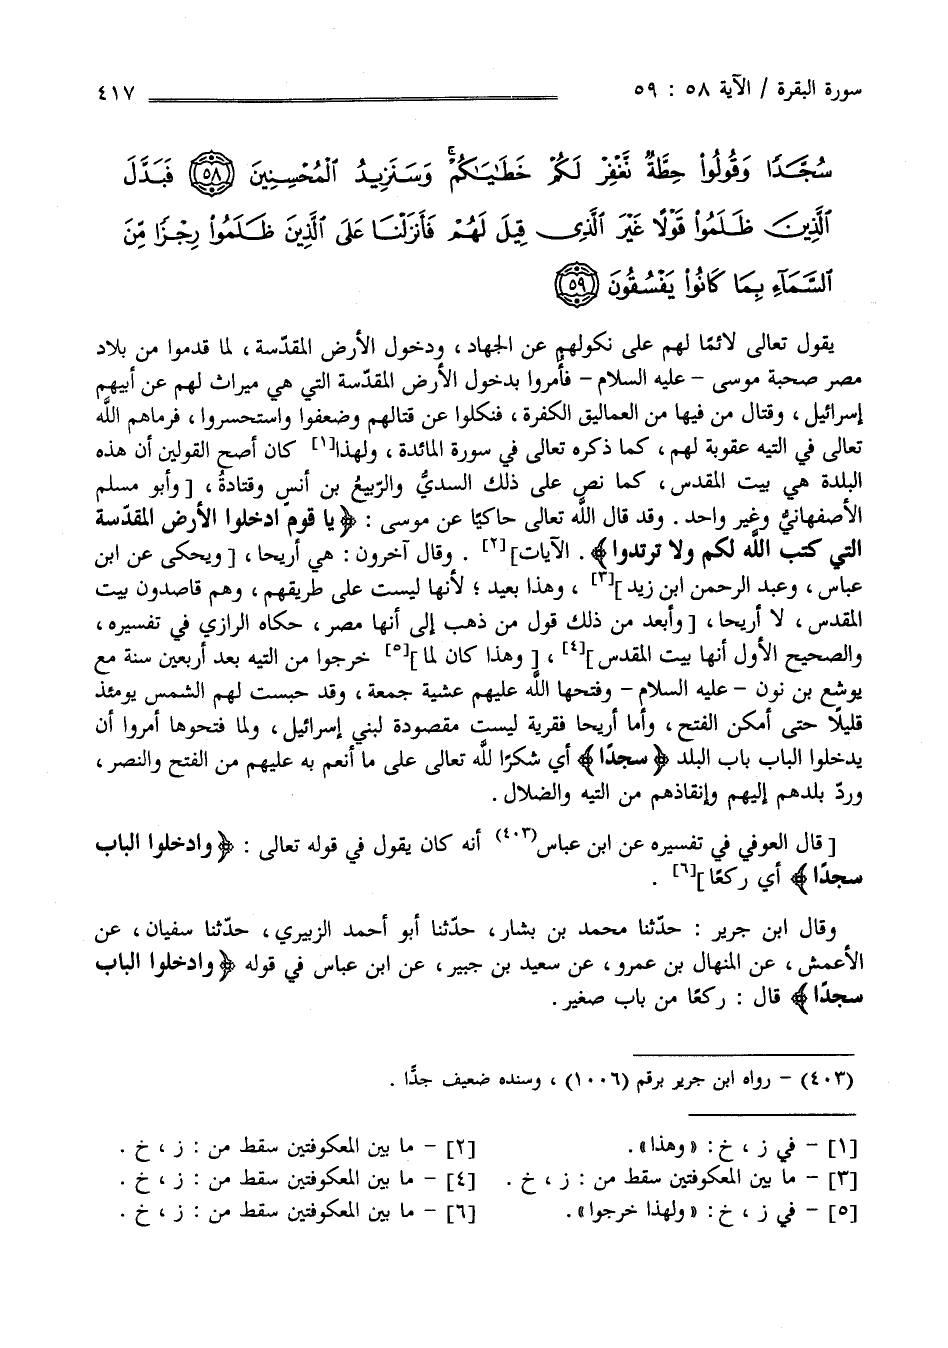 سورة البقرة / الآية ٥٨ : ٥٩ ٤١٧
سُجَّدًا وَقُولُوا۟ حِطَّةٌ نَّغْفِرْ لَكُمْ خَطَٰيَٰكُمْ ۚ وَسَنَزِيدُ ٱلْمُحْسِنِينَ ٥٨ فَبَدَّلَ
ٱلَّذِينَ ظَلَمُوا۟ قَوْلًا غَيْرَ ٱلَّذِى قِيلَ لَهُمْ فَأَنزَلْنَا عَلَى ٱلَّذِينَ ظَلَمُوا۟ رِجْزًا مِّنَ
ٱلسَّمَآءِ بِمَا كَانُوا۟ يَفْسُقُونَ ٥٩
يقول تعالى لائمًا لهم على نكولهم عن الجهاد ، ودخول الأرض المقدّسة ، لما قدموا من بلاد
مصر صحبة موسى – عليه السلام – فأُمروا بدخول الأرض المقدّسة التي هي ميراث لهم عن أبيهم
إسرائيل ، وقتال من فيها من العماليق الكفرة ، فنكلوا عن قتالهم وضعفوا واستحسروا ، فرماهم اللَّه
تعالى في التيه عقوبة لهم ، كما ذكره تعالى في سورة المائدة ، ولهذا[١] كان أصح القولين أن هذه
البلدة هي بيت المقدس ، كما نص على ذلك السديُّ والرّبيعُ بن أنسٍ وقتادةُ ، [ وأبو مسلم
الأصفهانيُّ وغير واحد . وقد قال اللَّه تعالى حاكيًا عن موسى : ﴿ يا قوم ادخلوا الأرض المقدّسة
التي كتب اللَّه لكم ولا ترتدوا ﴾ . الآيات ][٢] . وقال آخرون : هي أريحا ، [ ويحكى عن ابن
عباس ، وعبد الرحمن ابن زيد ][٣] ، وهذا بعيد ؛ لأنها ليست على طريقهم ، وهم قاصدون بيت
المقدس ، لا أريحا ، [ وأبعد من ذلك قول من ذهب إلى أنها مصر ، حكاه الرازي في تفسيره ،
والصحيح الأول أنها بيت المقدس ][٤] ، [ وهذا كان لما ][٥] خرجوا من التيه بعد أربعين سنة مع
يوشع بن نون – عليه السلام – وفتحها اللَّه عليهم عشية جمعة ، وقد حبست لهم الشمس يومئذ
قليلًا حتى أمكن الفتح ، وأما أريحا فقرية ليست مقصودة لبني إسرائيل ، ولما فتحوها أمروا أن
يدخلوا الباب باب البلد ﴿ سجدًا ﴾ أي شكرًا للَّه تعالى على ما أنعم به عليهم من الفتح والنصر ،
وردّ بلدهم إليهم وإنقاذهم من التيه والضلال .
[ قال العوفي في تفسيره عن ابن عباس(٤٠٣) أنه كان يقول في قوله تعالى : ﴿ وادخلوا الباب
سجدًا ﴾ أي ركعًا ][٦] .
وقال ابن جرير : حدّثنا محمد بن بشار ، حدّثنا أبو أحمد الزبيري ، حدّثنا سفيان ، عن
الأعمش ، عن المنهال بن عمرو ، عن سعيد بن جبير ، عن ابن عباس في قوله ﴿ وادخلوا الباب
سجدًا ﴾ قال : ركعًا من باب صغير .
(٤٠٣) – رواه ابن جرير برقم (١٠٠٦) ، وسنده ضعيف جدًّا .
[١] – في ز ، خ : «وهذا» . [٢] – ما بين المعكوفتين سقط من : ز ، خ .
[٣] – ما بين المعكوفتين سقط من : ز ، خ . [٤] – ما بين المعكوفتين سقط من : ز ، خ .
[٥] – في ز ، خ : «ولهذا خرجوا» . [٦] – ما بين المعكوفتين سقط من : ز ، خ .